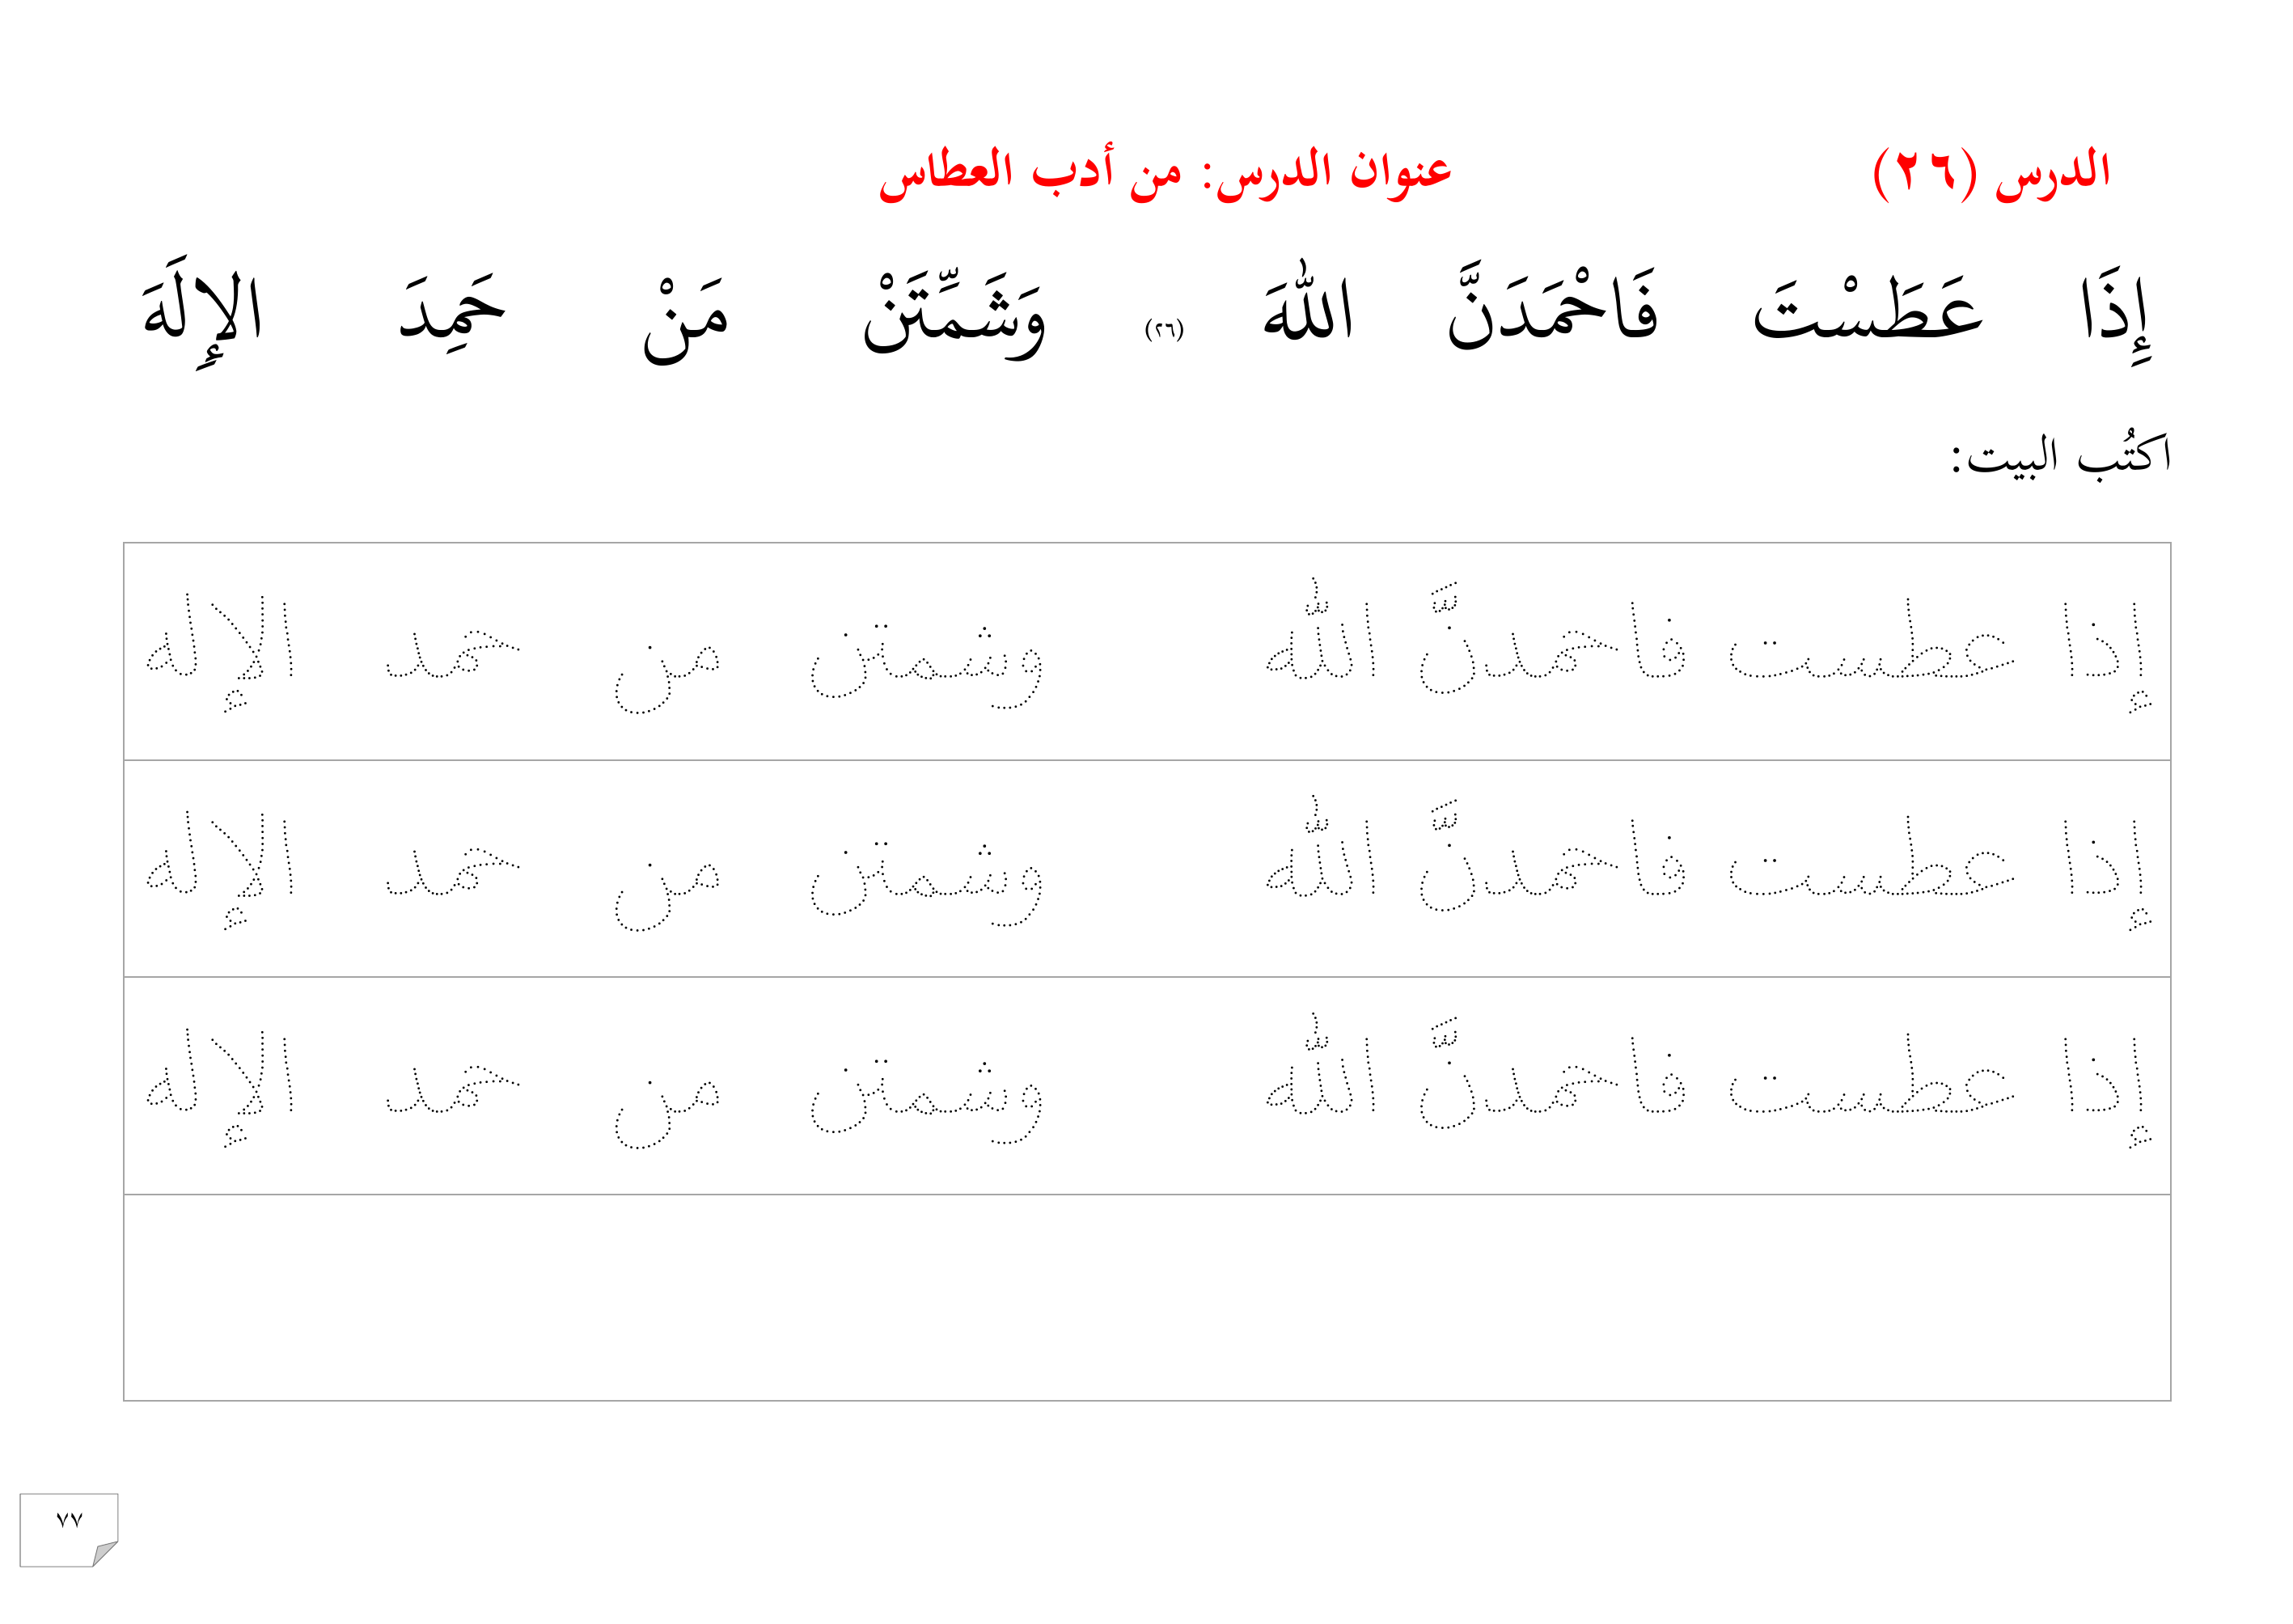 الدرس (٢٦) عنوان الدرس: من أدب العطاس
إِذَا عَطَسْتَ فَاحْمَدَنَّ اللهَ (٢٦) وَشَمِّتَنْ مَنْ حَمِدَ الإِلَهَ
اكتُب البيت:
إذا عطست فاحمدنَّ الله وشمتن من حمد الإله
إذا عطست فاحمدنَّ الله وشمتن من حمد الإله
إذا عطست فاحمدنَّ الله وشمتن من حمد الإله
٧٧